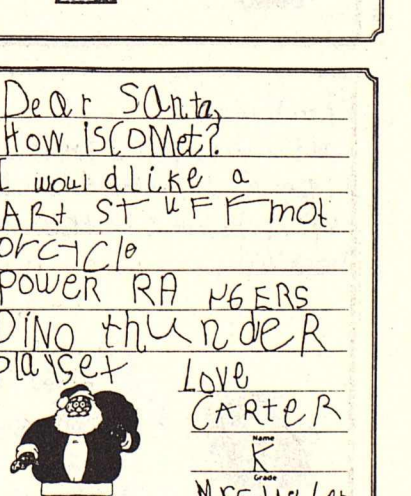 Dear Santa,
How is COMet?
I woul dlike a
ARt STUFF mot
orcycle
POWER RANGERS
DiNO thunder
playset
Love
CARteR
Name
K
Grade
Mrs